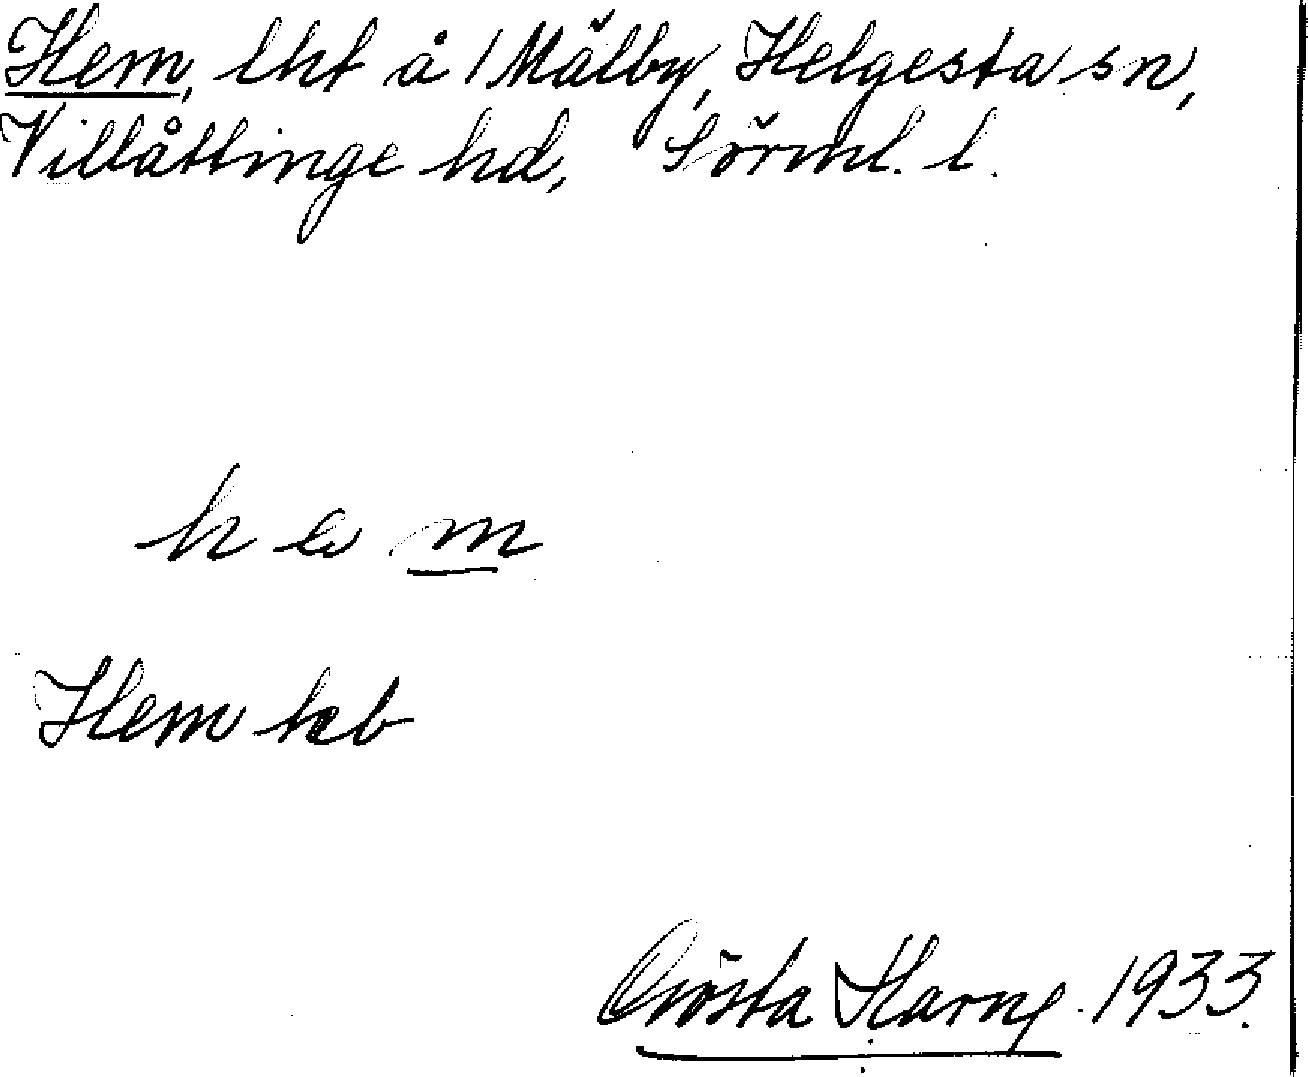 Hem, lht å 1 Mälby, Helgesta sn,
Villåttinge hd, Sörml. l.
h e m
Hem kb
Gösta Harng 1933.